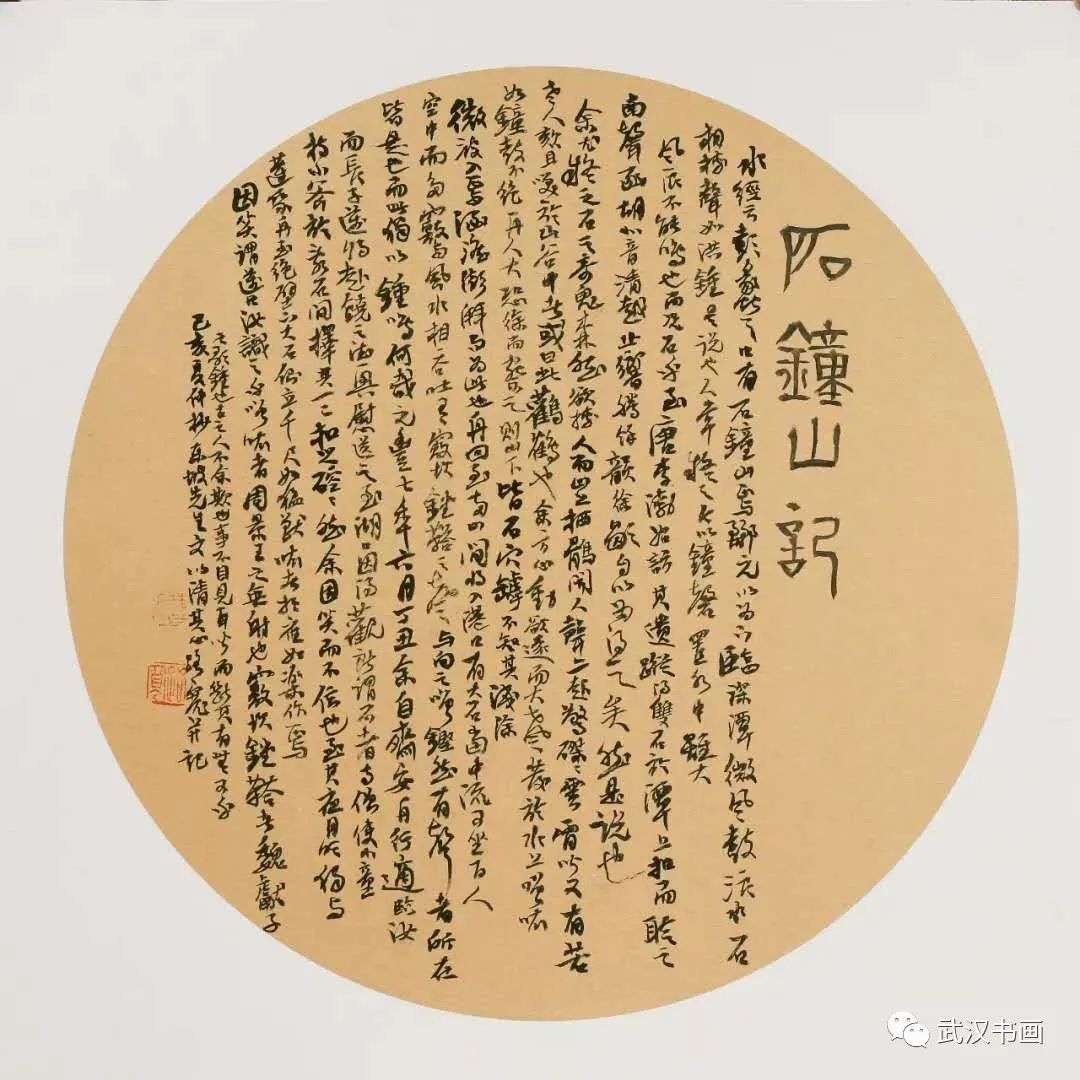 石鐘山記
水經云彭蠡之口有石鐘山焉酈元以為下臨深潭微風鼓浪水石
相搏聲如洪鐘是說也人常疑之今以鐘磬置水中雖大
風浪不能鳴也而況石乎至唐李渤始訪其遺蹤得雙石於潭上扣而聆之
南聲函胡北音清越止響騰餘韻徐歇自以為得之矣然是說也
余尤疑之石之奇鬼森然欲搏人而山上栖鶻聞人聲亦起驚磔々雲霄以又有若
老人欬且笑於山谷中者或曰此鸛鶴也余方心動欲還而大聲發於水上噌吰
如鐘鼓不絕舟人大恐徐而察之則山下皆石穴罅不知其淺深
微波入焉涵澹澎湃而為此也舟回至兩山間將入港口有大石當中流可坐百人
空中而多竅與風水相吞吐有窾坎鏜鞳之聲與向之噌鏗然有聲者所在
皆是也而此獨以鐘鳴何哉元豐七年六月丁丑余自齊安舟行適臨汝
而長子邁將赴饒之德興尉送之至湖口因得觀所謂石者寺僧使小童
持小斧於亂石間擇其一二扣之硿々然余固笑而不信也至其夜月明獨與
邁乘舟至絕壁下大石側立千尺如猛獸吰者相應如樂作焉
因笑謂邁曰汝識之乎噌吰者周景王之無射也窾坎鏜鞳者魏獻子
之歌鐘也古之人不余欺也事不目見耳聞而斷其有無可乎
己亥夏仲抄東坡先生文以清其心并記
武汉书画